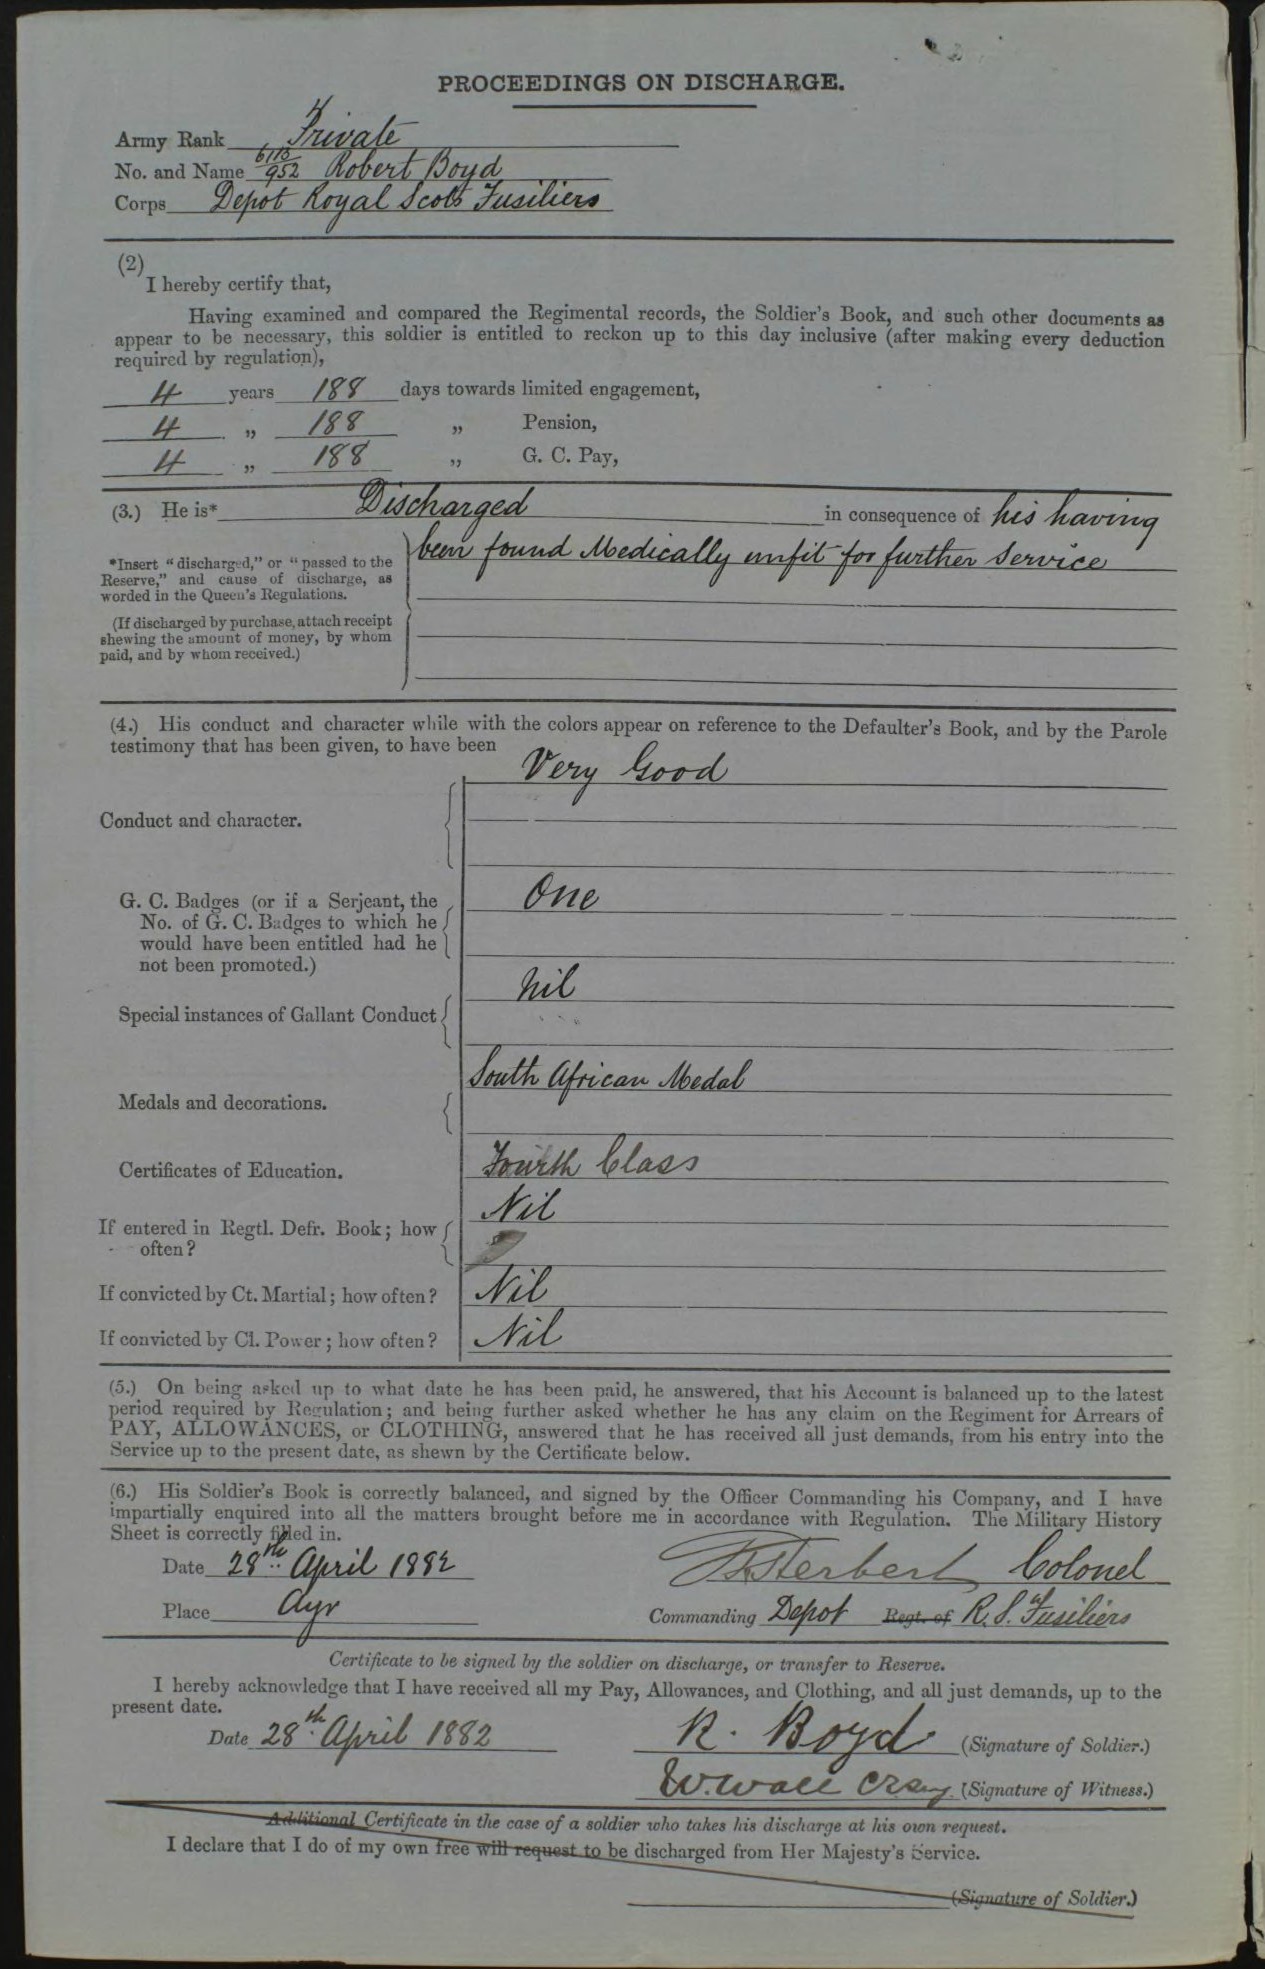 PROCEEDINGS ON DISCHARGE.
Army Rank Private
No. and Name 952 Robert Boyd
Corps Depot Royal Scots Fusiliers
(2)
I hereby certify that,
Having examined and compared the Regimental records, the Soldier's Book, and such other documents as
appear to be necessary, this soldier is entitled to reckon up to this day inclusive (after making every deduction
required by regulation),
4 years 188 days towards limited engagement,
4 „ 188 „ Pension,
4 „ 188 „ G. C. Pay,
(3.) He is* Discharged in consequence of his having
been found Medically unfit for further Service
*Insert "discharged," or "passed to the
Reserve," and cause of discharge, as
worded in the Queen's Regulations.
(If discharged by purchase, attach receipt
shewing the amount of money, by whom
paid, and by whom received.)
(4.) His conduct and character while with the colors appear on reference to the Defaulter's Book, and by the Parole
testimony that has been given, to have been
Very Good
Conduct and character.
G. C. Badges (or if a Serjeant, the
No. of G. C. Badges to which he
would have been entitled had he
not been promoted.)
One
Nil
Special instances of Gallant Conduct
South African Medal
Medals and decorations.
Certificates of Education. Fourth Class
Nil
If entered in Regtl. Defr. Book; how
often?
If convicted by Ct. Martial; how often? Nil
If convicted by Cl. Power; how often? Nil
(5.) On being asked up to what date he has been paid, he answered, that his Account is balanced up to the latest
period required by Regulation; and being further asked whether he has any claim on the Regiment for Arrears of
PAY, ALLOWANCES, or CLOTHING, answered that he has received all just demands, from his entry into the
Service up to the present date, as shewn by the Certificate below.
(6.) His Soldier's Book is correctly balanced, and signed by the Officer Commanding his Company, and I have
impartially enquired into all the matters brought before me in accordance with Regulation. The Military History
Sheet is correctly filled in.
Date 28th April 1882 Herbert Colonel
Place Ayr Commanding Depot Regt. of R. S. Fusiliers
Certificate to be signed by the soldier on discharge, or transfer to Reserve.
I hereby acknowledge that I have received all my Pay, Allowances, and Clothing, and all just demands, up to the
present date.
Date 28th April 1882 R. Boyd (Signature of Soldier.)
W. Wall (Signature of Witness.)
Additional Certificate in the case of a soldier who takes his discharge at his own request.
I declare that I do of my own free will request to be discharged from Her Majesty's Service.
(Signature of Soldier.)